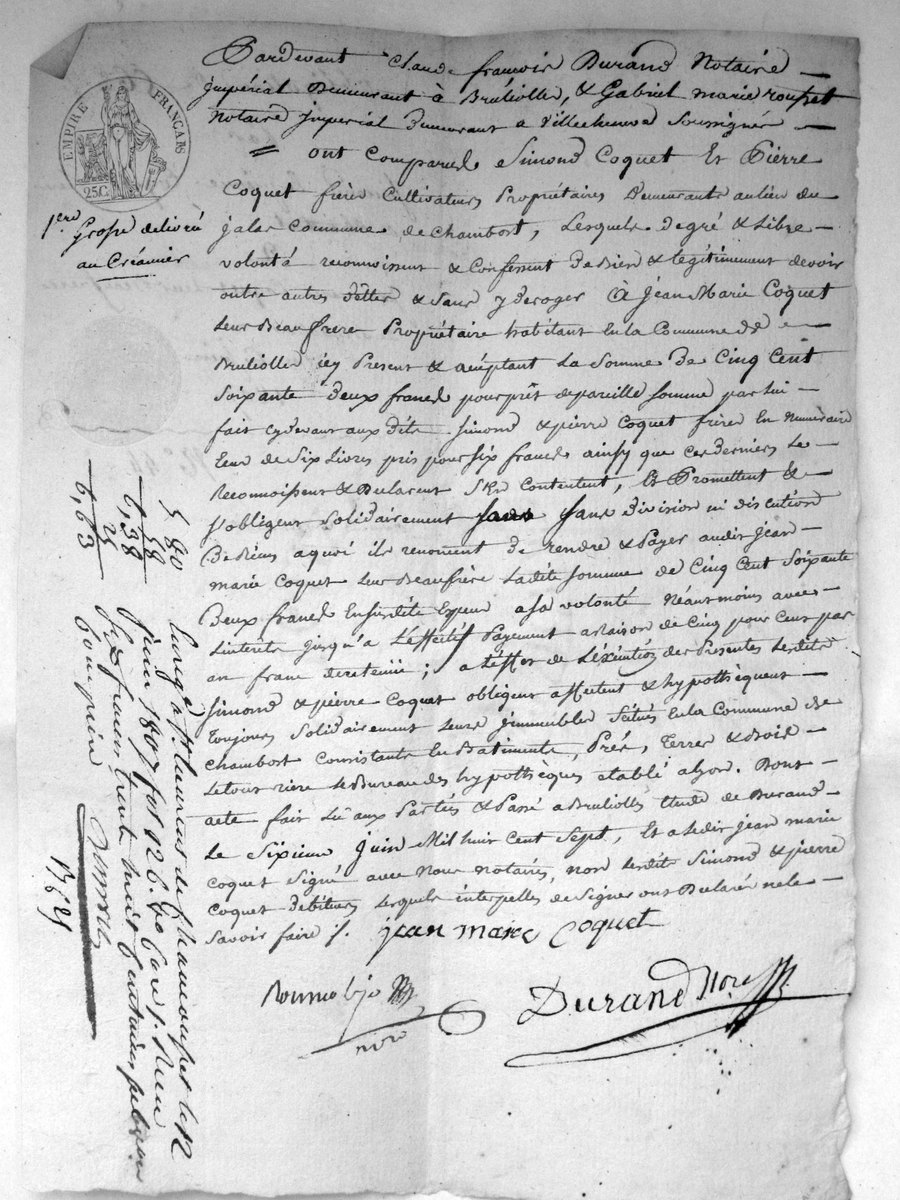 EMPIRE FRANÇAIS
25C.
1ere Grosse delivré
au Créancier
Pardevant Claude françois Durand Notaire
Impérial Demeurant à Brulliolle, & Gabriel marie rousset
Notaire Imperial demeurant a Villecheneve Soussignés
ont Comparud Simond Coquet Et Pierre
Coquet frére Cultivateurs Propriétaires Demeurants au lieu du
jalas Commune de chambost, Lesquels de gré & Libre
volonté reconnoissent & Confessent De Bien & légitimement devoir
outre autres Dettes & Sans y deroger À Jean Marie Coquet
Leur Beaufrere Propriétaire habitant En la Commune de
Brulliolle icy Present & acceptant La Somme De Cinq Cent
Soixante deux francs pour prêt de pareille somme par lui
fait cy devant aux Dits Simond & pierre Coquet frères En Numéraire
Ecus de Six Livres pris pour six francs ainsy que ces derniers Le
Reconnoissent & Declarent S'En Contentent, Et Promettent &
s'obligent Solidairement sans division ni discution
De Biens a quoi ils renoncent De rendre & Payer audit jean
marie Coquet Leur Beaufrère Ladite somme de Cinq Cent Soixante
Deux francs En susdite Espece a sa volonté Néant moins avec
L'interets jusqu'a L'effectif Payement a raison de Cinq pour Cent par
an franc de retenue ; a L'effet de L'éxécution des Presentes Lesdits
Simond & pierre Coquet obligent affectent & hypothèquent
Toujours Solidairement Leurs jmmeubles Situés En la Commune de
chambost Consistants En Batiments, Prés, Terres & Bois
Le tout riere Le Bureau des hypothèques etablé a Lyon. Dont
acte fait Lû aux Parties & Passé a Brulliolle Etude de Durand
Le Sixieme Juin Mil huit Cent Sept, Et a ledit jean marie
Coquet Signé avec Nous notaires, non lesdits Simond & pierre
Coquet Debiteurs Lesquels interpellés de Signer ont Declaré ne le
Savoir faire
jean marie Coquet
nore
Durand Nore
Enrgé a St Laurent de Chamousset le 12
juin 1807 fol 126. Reçu
Six francs trente huit Centimes subvention
Comprise
5 80
58
6,38
25
6,63